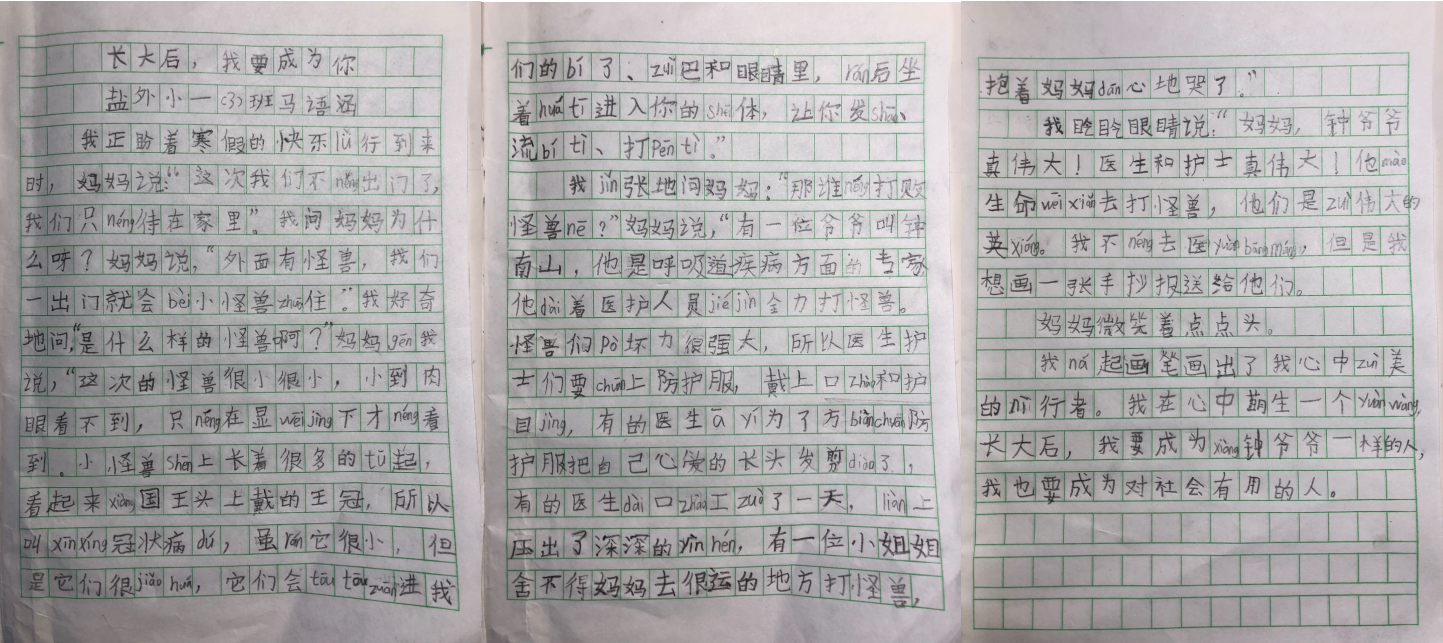 长大后，我要成为你
盐外小一（3）班马语涵
我正盼着寒假的快乐lǚ行到来
时，妈妈说：“这次我们不néng出门了，
我们只néng待在家里”。我问妈妈为什
么呀？妈妈说，“外面有怪兽，我们
一出门就会bèi小怪兽zhuā住。”我好奇
地问，“是什么样的怪兽啊？”妈妈gēn我
说，“这次的怪兽很小很小，小到肉
眼看不到，只néng在显wēijìng下才néng看
到。小怪兽shēn上长着很多的tū起，
看起来xiàng国王头上戴的王冠，所以
叫xīnxíng冠状病dú，虽rán它很小，但
是它们很jiǎo huá，它们会tōu tōu zuān进我
们的bí了、zuǐ巴和眼睛里，rán后坐
着huá tī进入你的shēn体，让你发shāo、
流bí tì、打pēn tì。”
我jǐn张地问妈妈：“那谁néng打败
怪兽nē？”妈妈说，“有一位爷爷叫钟
南山，他是呼吸道疾病方面的专家
他dài着医护人员jiéjìn全力打怪兽。
怪兽们pò坏力很强大，所以医生护
士们要chuān上防护服，戴上口zhào和护
目jìng，有的医生ā yí为了方biànchuān防
护服把自己心爱的长头发剪diào了，
有的医生dài口zhào工zuò了一天，liǎn上
压出了深深的yìn hén，有一位小姐姐
舍不得妈妈去很远的地方打怪兽，
抱着妈妈dān心地哭了。”
我眨眨眼睛说：“妈妈，钟爷爷
真伟大！医生和护士真伟大！他mào
生命wēi xiǎn去打怪兽，他们是zuì伟大的
英xióng。我不néng去医yuàn bāngmáng，但是我
想画一张手抄报送给他们。
妈妈微笑着点点头。
我ná起画笔画出了我心中zuì美
的nì行者。我在心中萌生一个yuàn wàng，
长大后，我要成为xiàng钟爷爷一样的人，
我也要成为对社会有用的人。